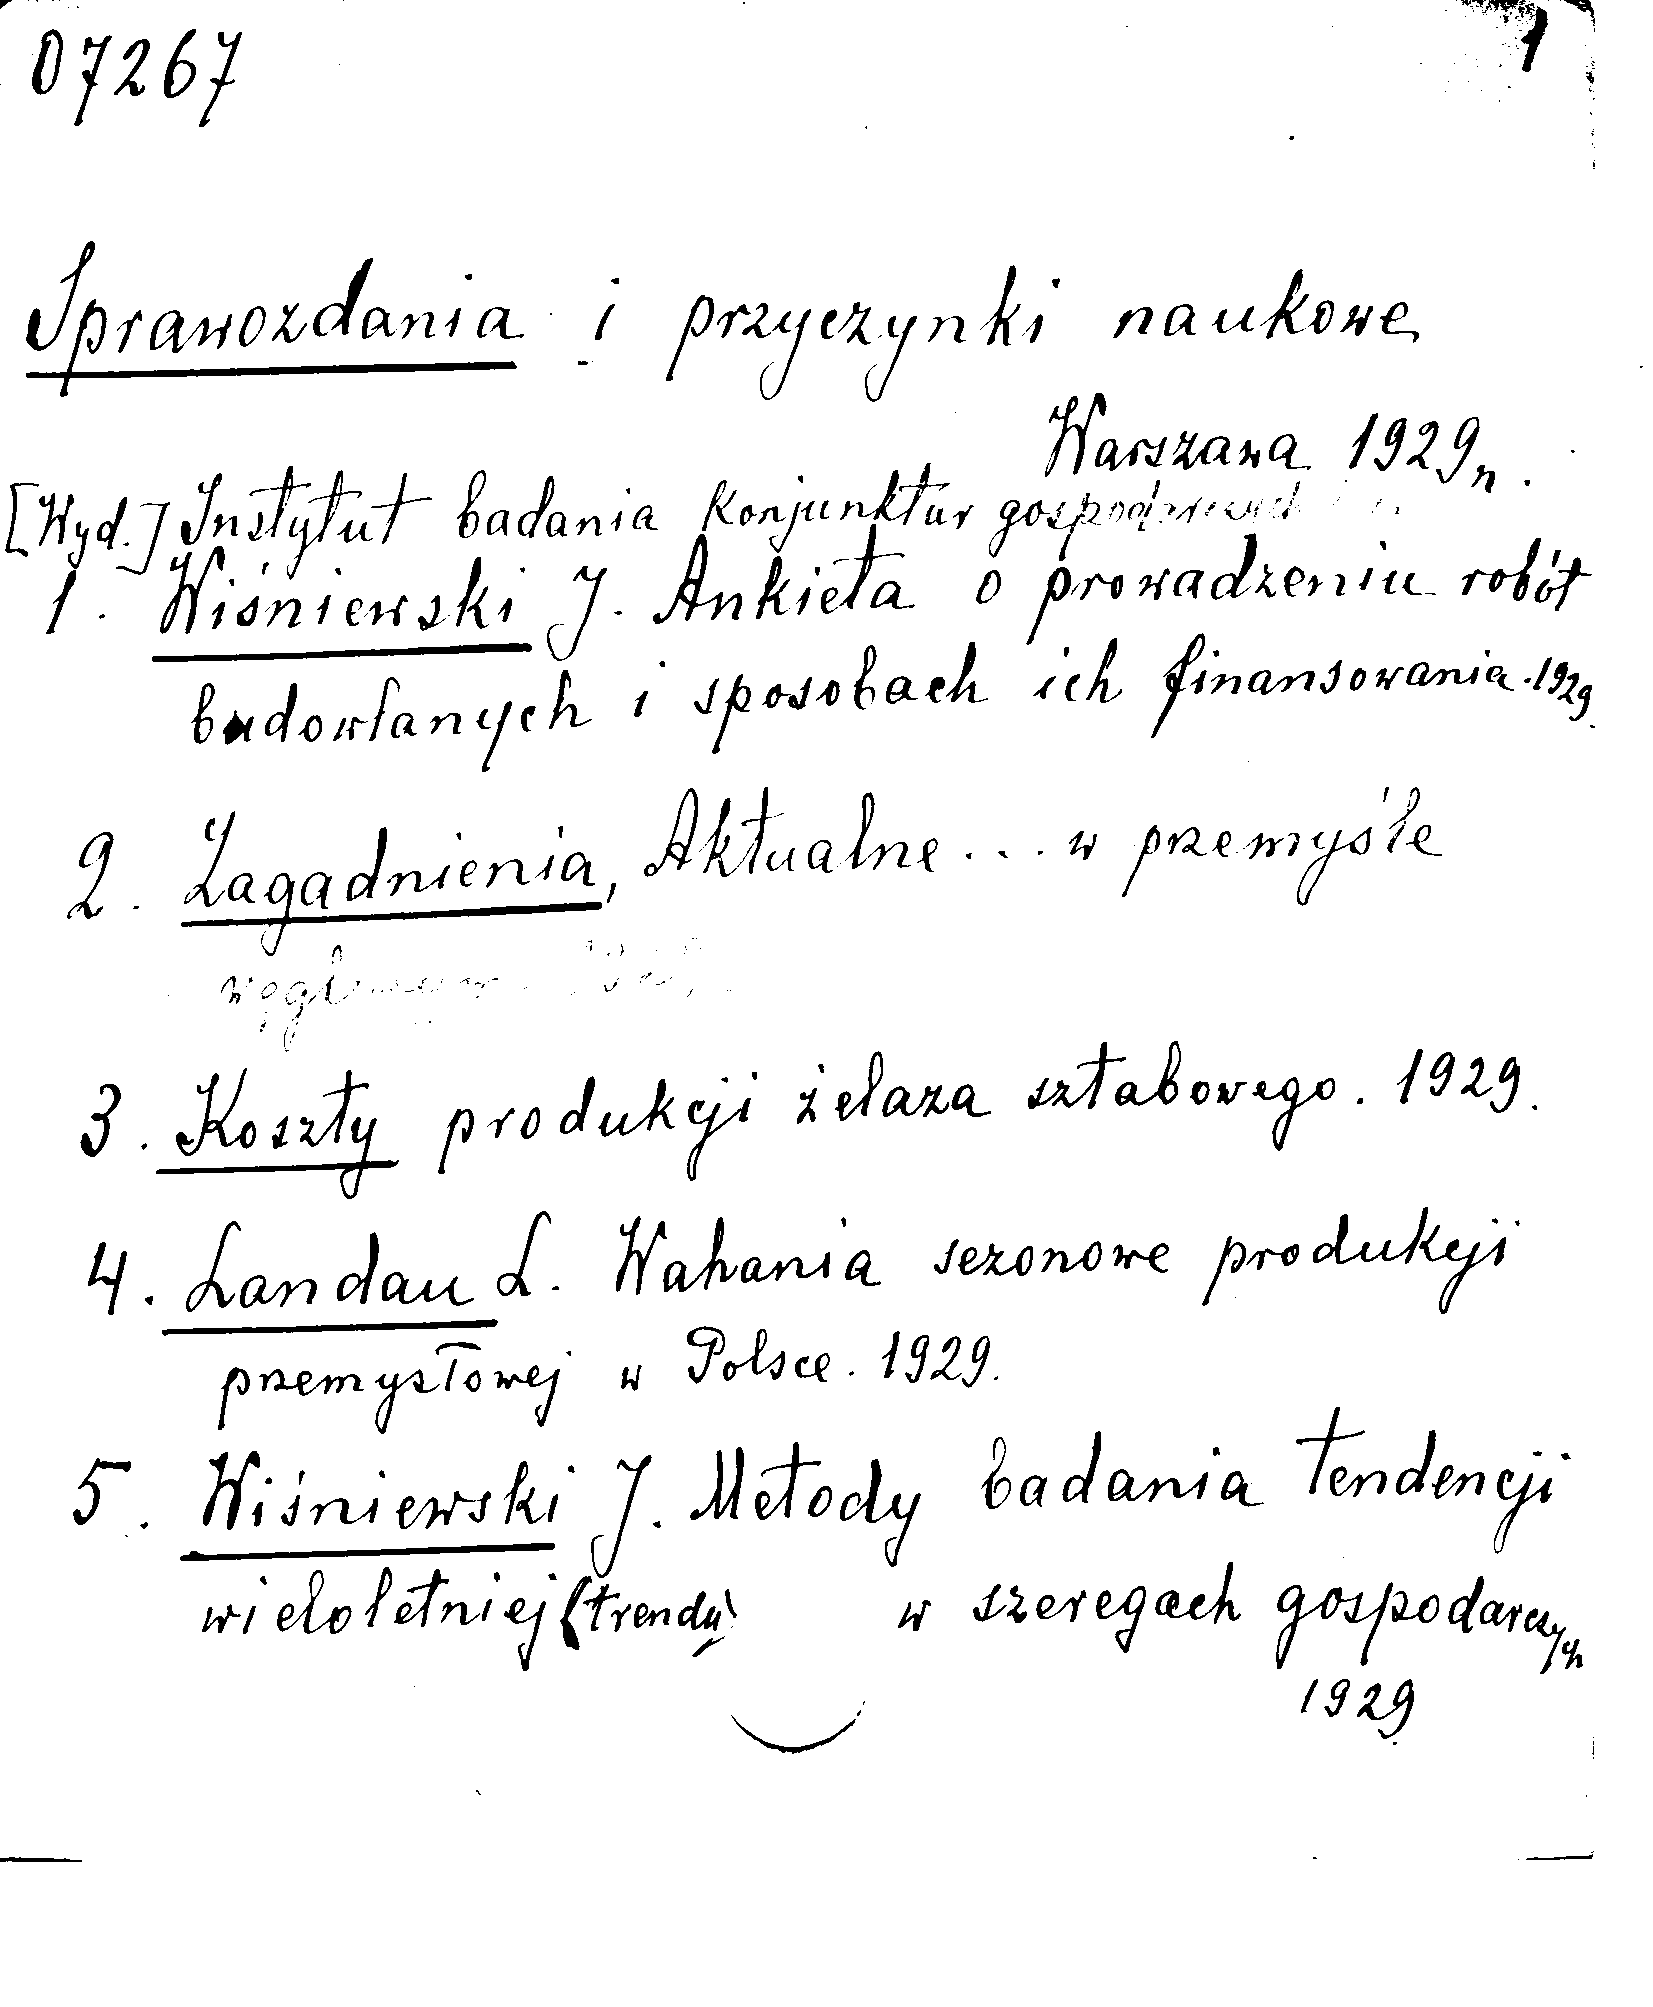 07267
1
Sprawozdania i przyczynki naukowe
Warszawa 1929 n.
[Wyd.] Instytut badania konjunktur gospodarczych
1. Wiśniewski J. Ankieta o prowadzeniu robót
budowlanych i sposobach ich finansowania. 1929.
2. Zagadnienia, Aktualne ... w przemyśle
3. Koszty produkcji żelaza sztabowego. 1929.
4. Landau L. Wahania sezonowe produkcji
przemysłowej w Polsce. 1929.
5. Wiśniewski J. Metody badania tendencji
wieloletniej (trendu) w szeregach gospodarczych
1929